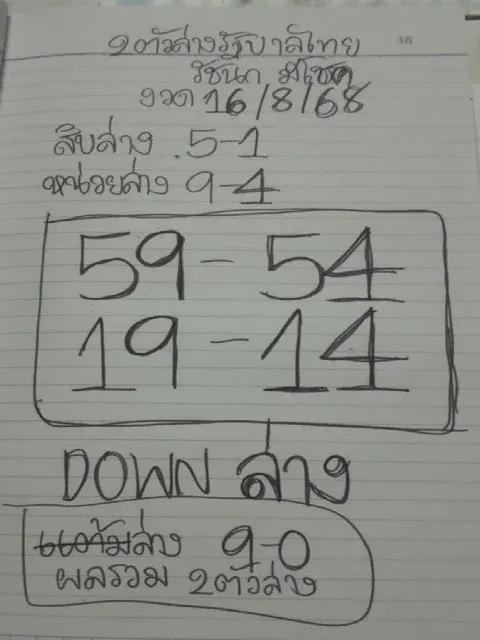 38
2ตัวล่างรัฐบาลไทย
รัชนก มีโชค
งวด 16/8/68
สิบล่าง .5-1
หน่วยล่าง 9-4
59-54
19-14
DOWN ล่าง
แต้มล่าง 9-0
ผลรวม 2ตัวล่าง